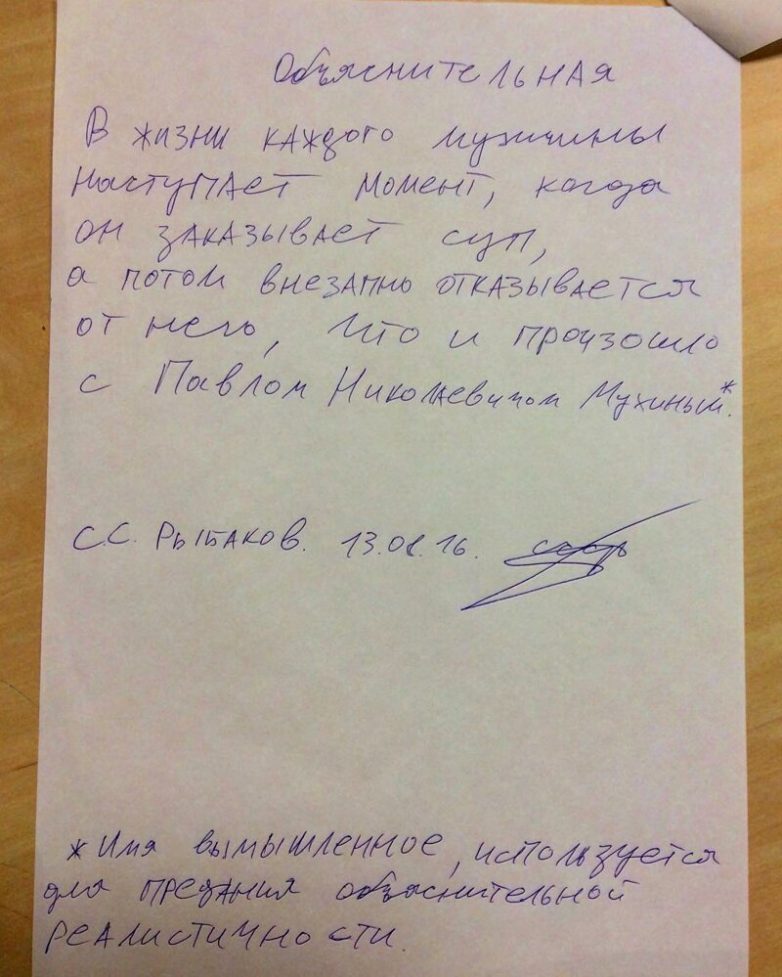 Объяснительная
В жизни каждого мужчины
наступает момент, когда
он заказывает суп,
а потом внезапно отказывается
от него, что и произошло
с Павлом Николаевичом Мухиным*.
С.С. Рыбаков. 13.08.16.
* Имя вымышленное, используется
для предания объяснительной
реалистичности.